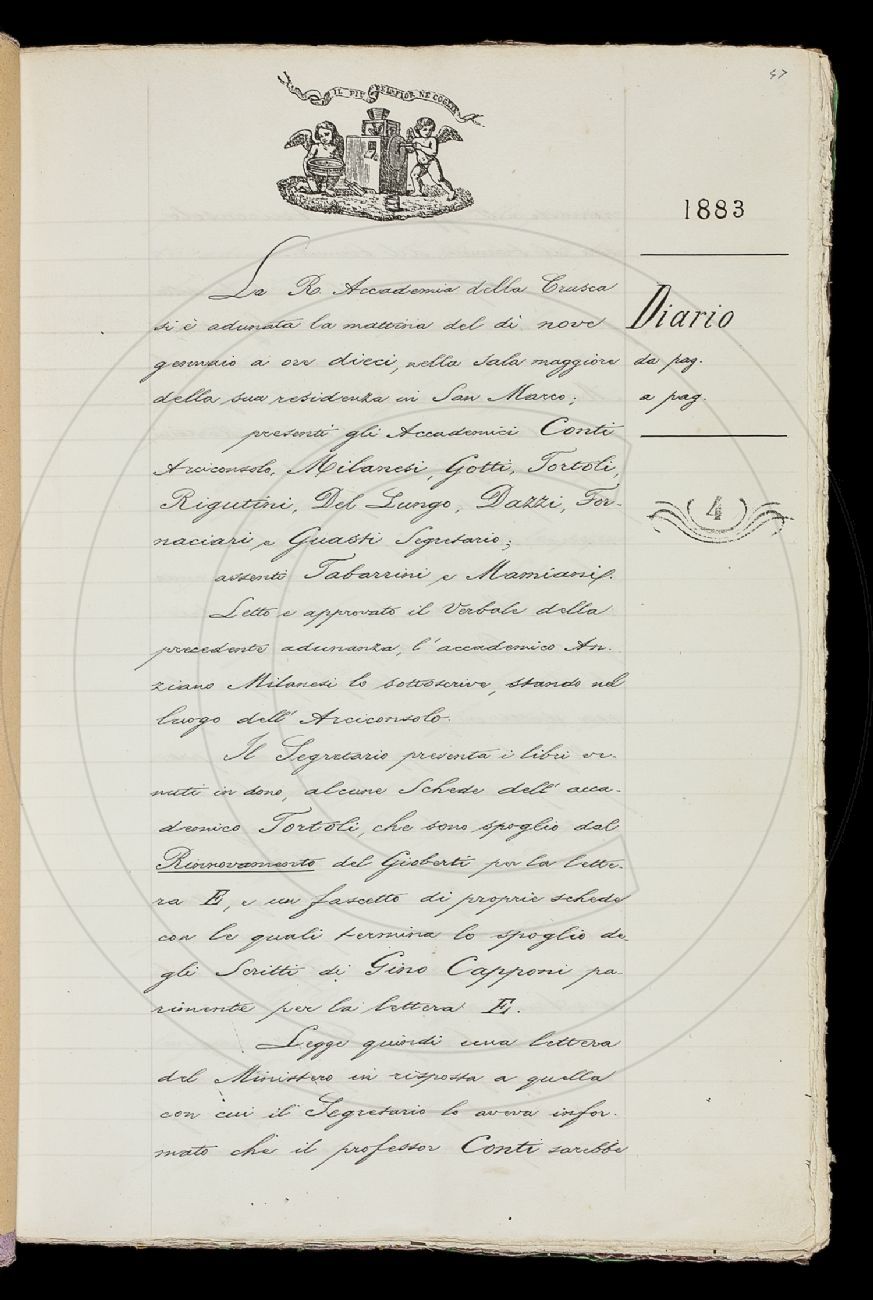 IL PIU BEL FIOR NE COGLIE
47
1883
Diario
da pag.
a pag.
4
La R. Accademia della Crusca
si è adunata la mattina del dì nove
gennaio a ore dieci, nella sala maggiore
della sua residenza in San Marco;
presenti gli Accademici Conti
Arciconsolo, Milanesi, Gotti, Tortoli,
Rigutini, Del Lungo, Dazzi, For-
naciari, e Guasti Segretario;
assenti Tabarrini e Mamiani.
Letto e approvato il Verbale della
precedente adunanza, l'accademico An-
ziano Milanesi lo sottoscrive, stando nel
luogo dell'Arciconsolo.
Il Segretario presenta i libri ve-
nuti in dono, alcune Schede dell'acca-
demico Tortoli, che sono spoglio dal
Rinnovamento del Gioberti per la lette-
ra E, e un fascetto di proprie schede
con le quali termina lo spoglio de-
gli Scritti di Gino Capponi pa-
rimente per la lettera E.
Legge quindi una lettera
del Ministero in risposta a quella
con cui il Segretario lo aveva infor-
mato che il professor Conti sarebbe